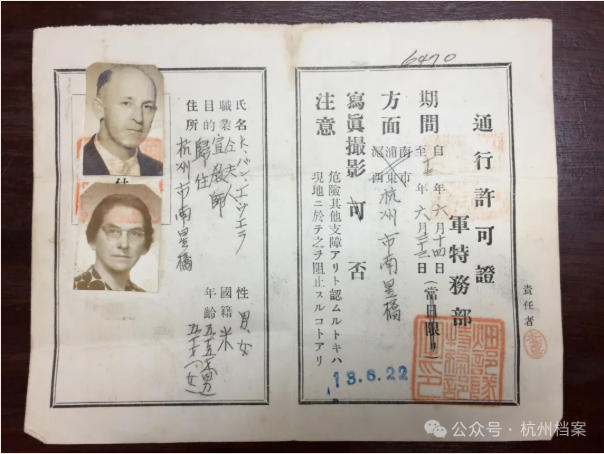 6470
通行許可證
軍特務部
期間
自 年六月十四日
至十三年六月二十三日
(當日限リ)
方面
南市
浦東
滬西
杭州市南星橋
寫眞撮影可否
注意
危險其他支障アリト認ムルトキハ
現地ニ於テ之ヲ阻止スルコトアリ
13.6.22
責任者
氏名
職業 宣教師
目的 歸任
住所 杭州市南星橋
性 男女
國籍 米
年齡
公众号·杭州档案